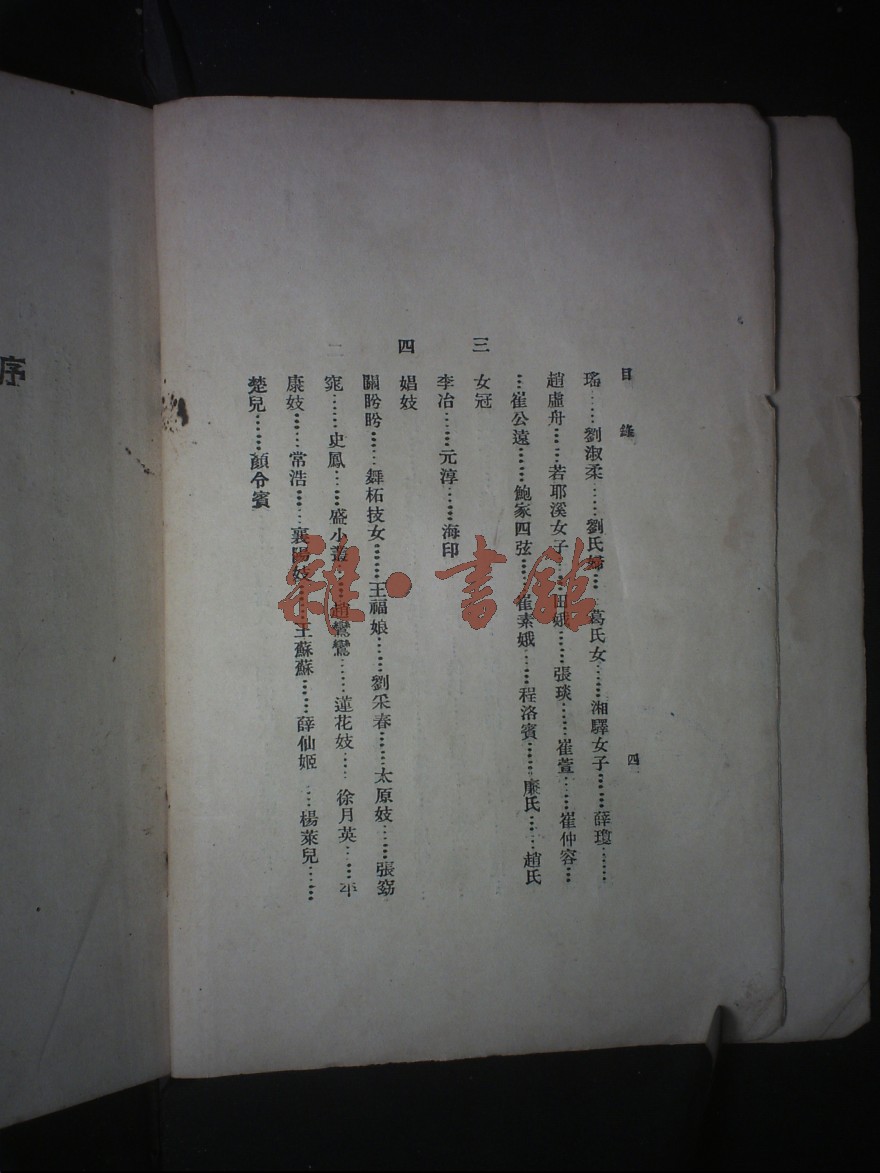 目錄 四
瑤……劉淑柔……劉氏婦……葛氏女……湘驛女子……薛瓊……
趙虛舟……若耶溪女子……田娥……張琰……崔萱……崔仲容…
…崔公遠……鮑家四弦……崔素娥……程洛賓……廉氏……趙氏
三 女冠
李冶……元淳……海印
四 娼妓
關盼盼……舞柘技女……王福娘……劉采春……太原妓……張窈
窕……史鳳……盛小叢……趙鸞鸞……蓮花妓……徐月英……平
康妓……常浩……襄陽妓……王蘇蘇……薛仙姬……楊萊兒……
楚兒……顏令賓
序
雜·書館